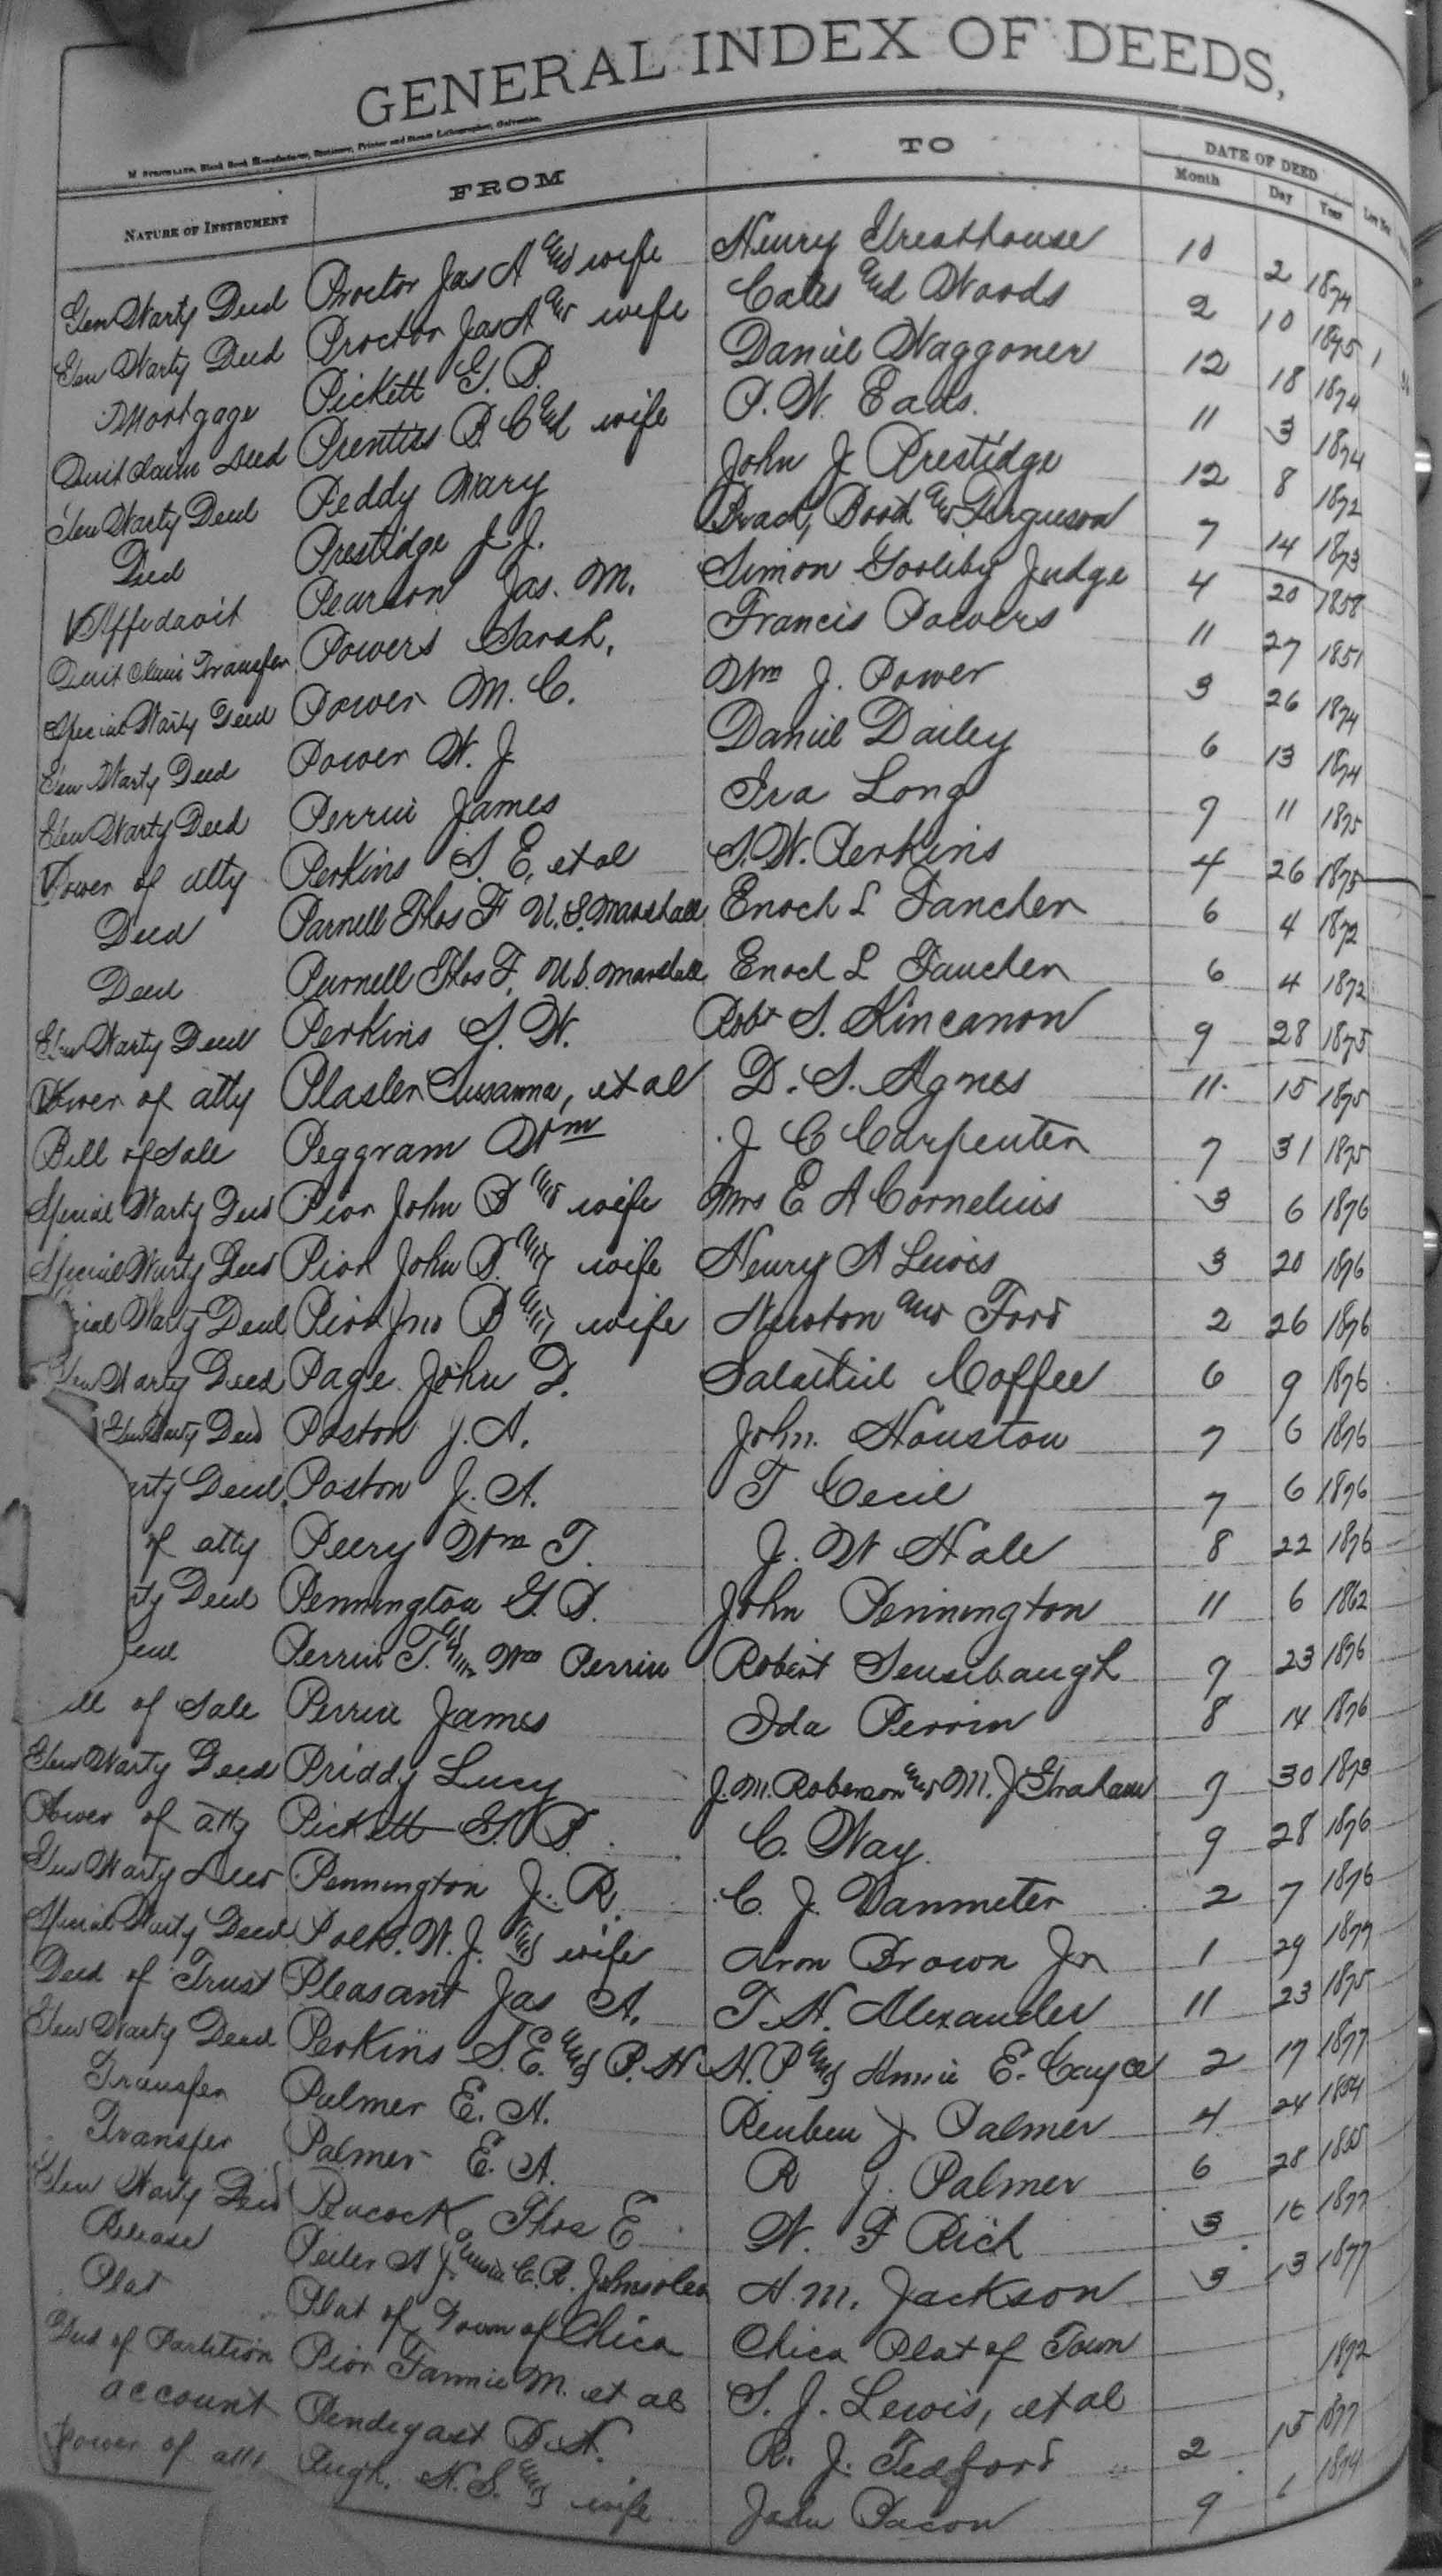 GENERAL INDEX OF DEEDS,
NATURE OF INSTRUMENT FROM TO DATE OF DEED
Month Day Year
Gen Warty Deed Proctor Jas A and wife Henry Greathouse 10 2 1874
Gen Warty Deed Proctor Jas A and wife Cates and Woods 2 10 1875
Mortgage Pickett G. B. Daniel Waggoner 12 18 1874
Quit Claim Deed Prentiss B. C and wife P. W. Eads. 11 3 1874
Gen Warty Deed Peddy Mary John J Prestidge 12 8 1872
Deed Prestidge J. J. Brad, Boot and Ferguson 7 14 1873
Affidavit Pearson Jas. M. Simon Judge 4 20 1858
Quit Claim Transfer Powers Sarah, Francis Powers 11 27 1851
Special Warty Deed Power M. C. Wm J. Power 3 26 1874
Gen Warty Deed Power W. J. Daniel Dailey 6 13 1874
Gen Warty Deed Perrin James Ira Long 9 11 1875
Power of atty Perkins S. E, et al S. W. Perkins 4 26 1875
Deed Parnell Thos F U.S. Marshall Enoch L Fancher 6 4 1872
Deed Purnell Thos F. U.S. Marshall Enoch L Fancher 6 4 1872
Gen Warty Deed Perkins S. W. Robt S. Kincanon 9 28 1875
Power of atty Plasler Susanna, et al D. S. Agnes 11 15 1875
Bill of Sale Peggram Wm J C Carpenter 7 31 1875
Special Warty Deed Pior John B and wife Mrs E A Cornelius 3 6 1876
Special Warty Deed Pior John B. and wife Henry A Lewis 3 20 1876
cial Warty Deed Pior Jno B and wife Newton and Ford 2 26 1876
Gen Warty Deed Page John D. Salathiel Coffee 6 9 1876
Gen Warty Deed Poston J. A. John Houston 7 6 1876
rty Deed Poston J. A. T Cecil 7 6 1876
of atty Peery Wm T. J. W Hale 8 22 1876
ty Deed Pennington G. B. John Pennington 11 6 1862
eed Perrin T. and Wm Perrin Robert Sensibaugh 9 23 1876
ll of Sale Perrin James Ida Perrin 8 14 1876
Gen Warty Deed Priddy Lucy J. M. Roberson and M. J Graham 9 30 1873
Power of atty Pickett G. B. C. Way 9 28 1876
Gen Warty Deed Pennington J. R. C. J. Vanmeter 2 7 1876
Special Warty Deed Polk. W. J. and wife Aron Brown Jr 1 29 1877
Deed of Trust Pleasant Jas A. T. H. Alexander 11 23 1875
Gen Warty Deed Perkins S. E. and P. H H. P and Annie E. Cayce 2 17 1877
Transfer Palmer E. A. Reuben J Palmer 4 24 1854
Transfer Palmer E. A. R J. Palmer 6 28
Gen Warty Deed Peacock Thos E W. F Rich 3 1877
Release Peiler A J C. R. A. M. Jackson 3 13 1877
Plat Plat of Town of Chico Chico Plat of Town
Deed of Partition Pior Fannie M. et al S. J. Lewis, et al 1872
account Pendegast D. A. R. J. Tedford 2 15 1877
Power of atty Pugh. H. S. and wife John Bacon 9 1 1874